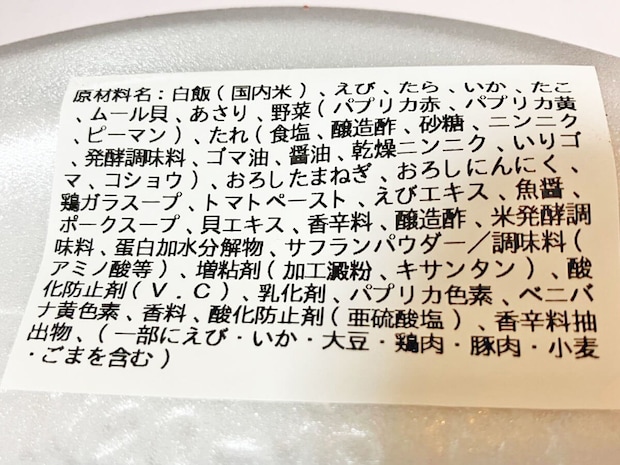 原材料名：白飯(国内米)、えび、たら、いか、たこ
、ムール貝、あさり、野菜(パプリカ赤、パプリカ黄
、ピーマン)、たれ(食塩、醸造酢、砂糖、ニンニク
、発酵調味料、ゴマ油、醤油、乾燥ニンニク、いりゴ
マ、コショウ)、おろしたまねぎ、おろしにんにく、
鶏ガラスープ、トマトペースト、えびエキス、魚醤、
ポークスープ、貝エキス、香辛料、醸造酢、米発酵調
味料、蛋白加水分解物、サフランパウダー／調味料(
アミノ酸等)、増粘剤(加工澱粉、キサンタン)、酸
化防止剤(V．C)、乳化剤、パプリカ色素、ベニバ
ナ黄色素、香料、酸化防止剤(亜硫酸塩)、香辛料抽
出物、(一部にえび・いか・大豆・鶏肉・豚肉・小麦
・ごまを含む)